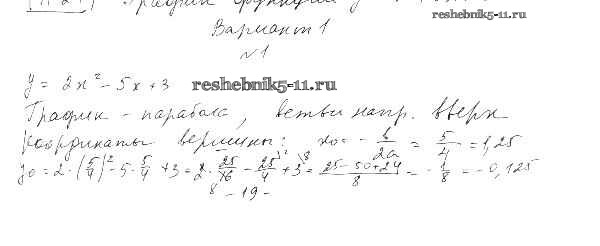 График функции y =
reshebnik5-11.ru
Вариант 1
№1
y = 2x² - 5x + 3 reshebnik5-11.ru
График - парабола, ветви напр. вверх
Координаты вершины: x₀ = - b/2a = 5/4 = 1,25
y₀ = 2 · (5/4)² - 5 · 5/4 + 3 = 2 · 25/16 - 25/4 + 3 = (25 - 50 + 24)/8 = - 1/8 = - 0,125
- 19 -